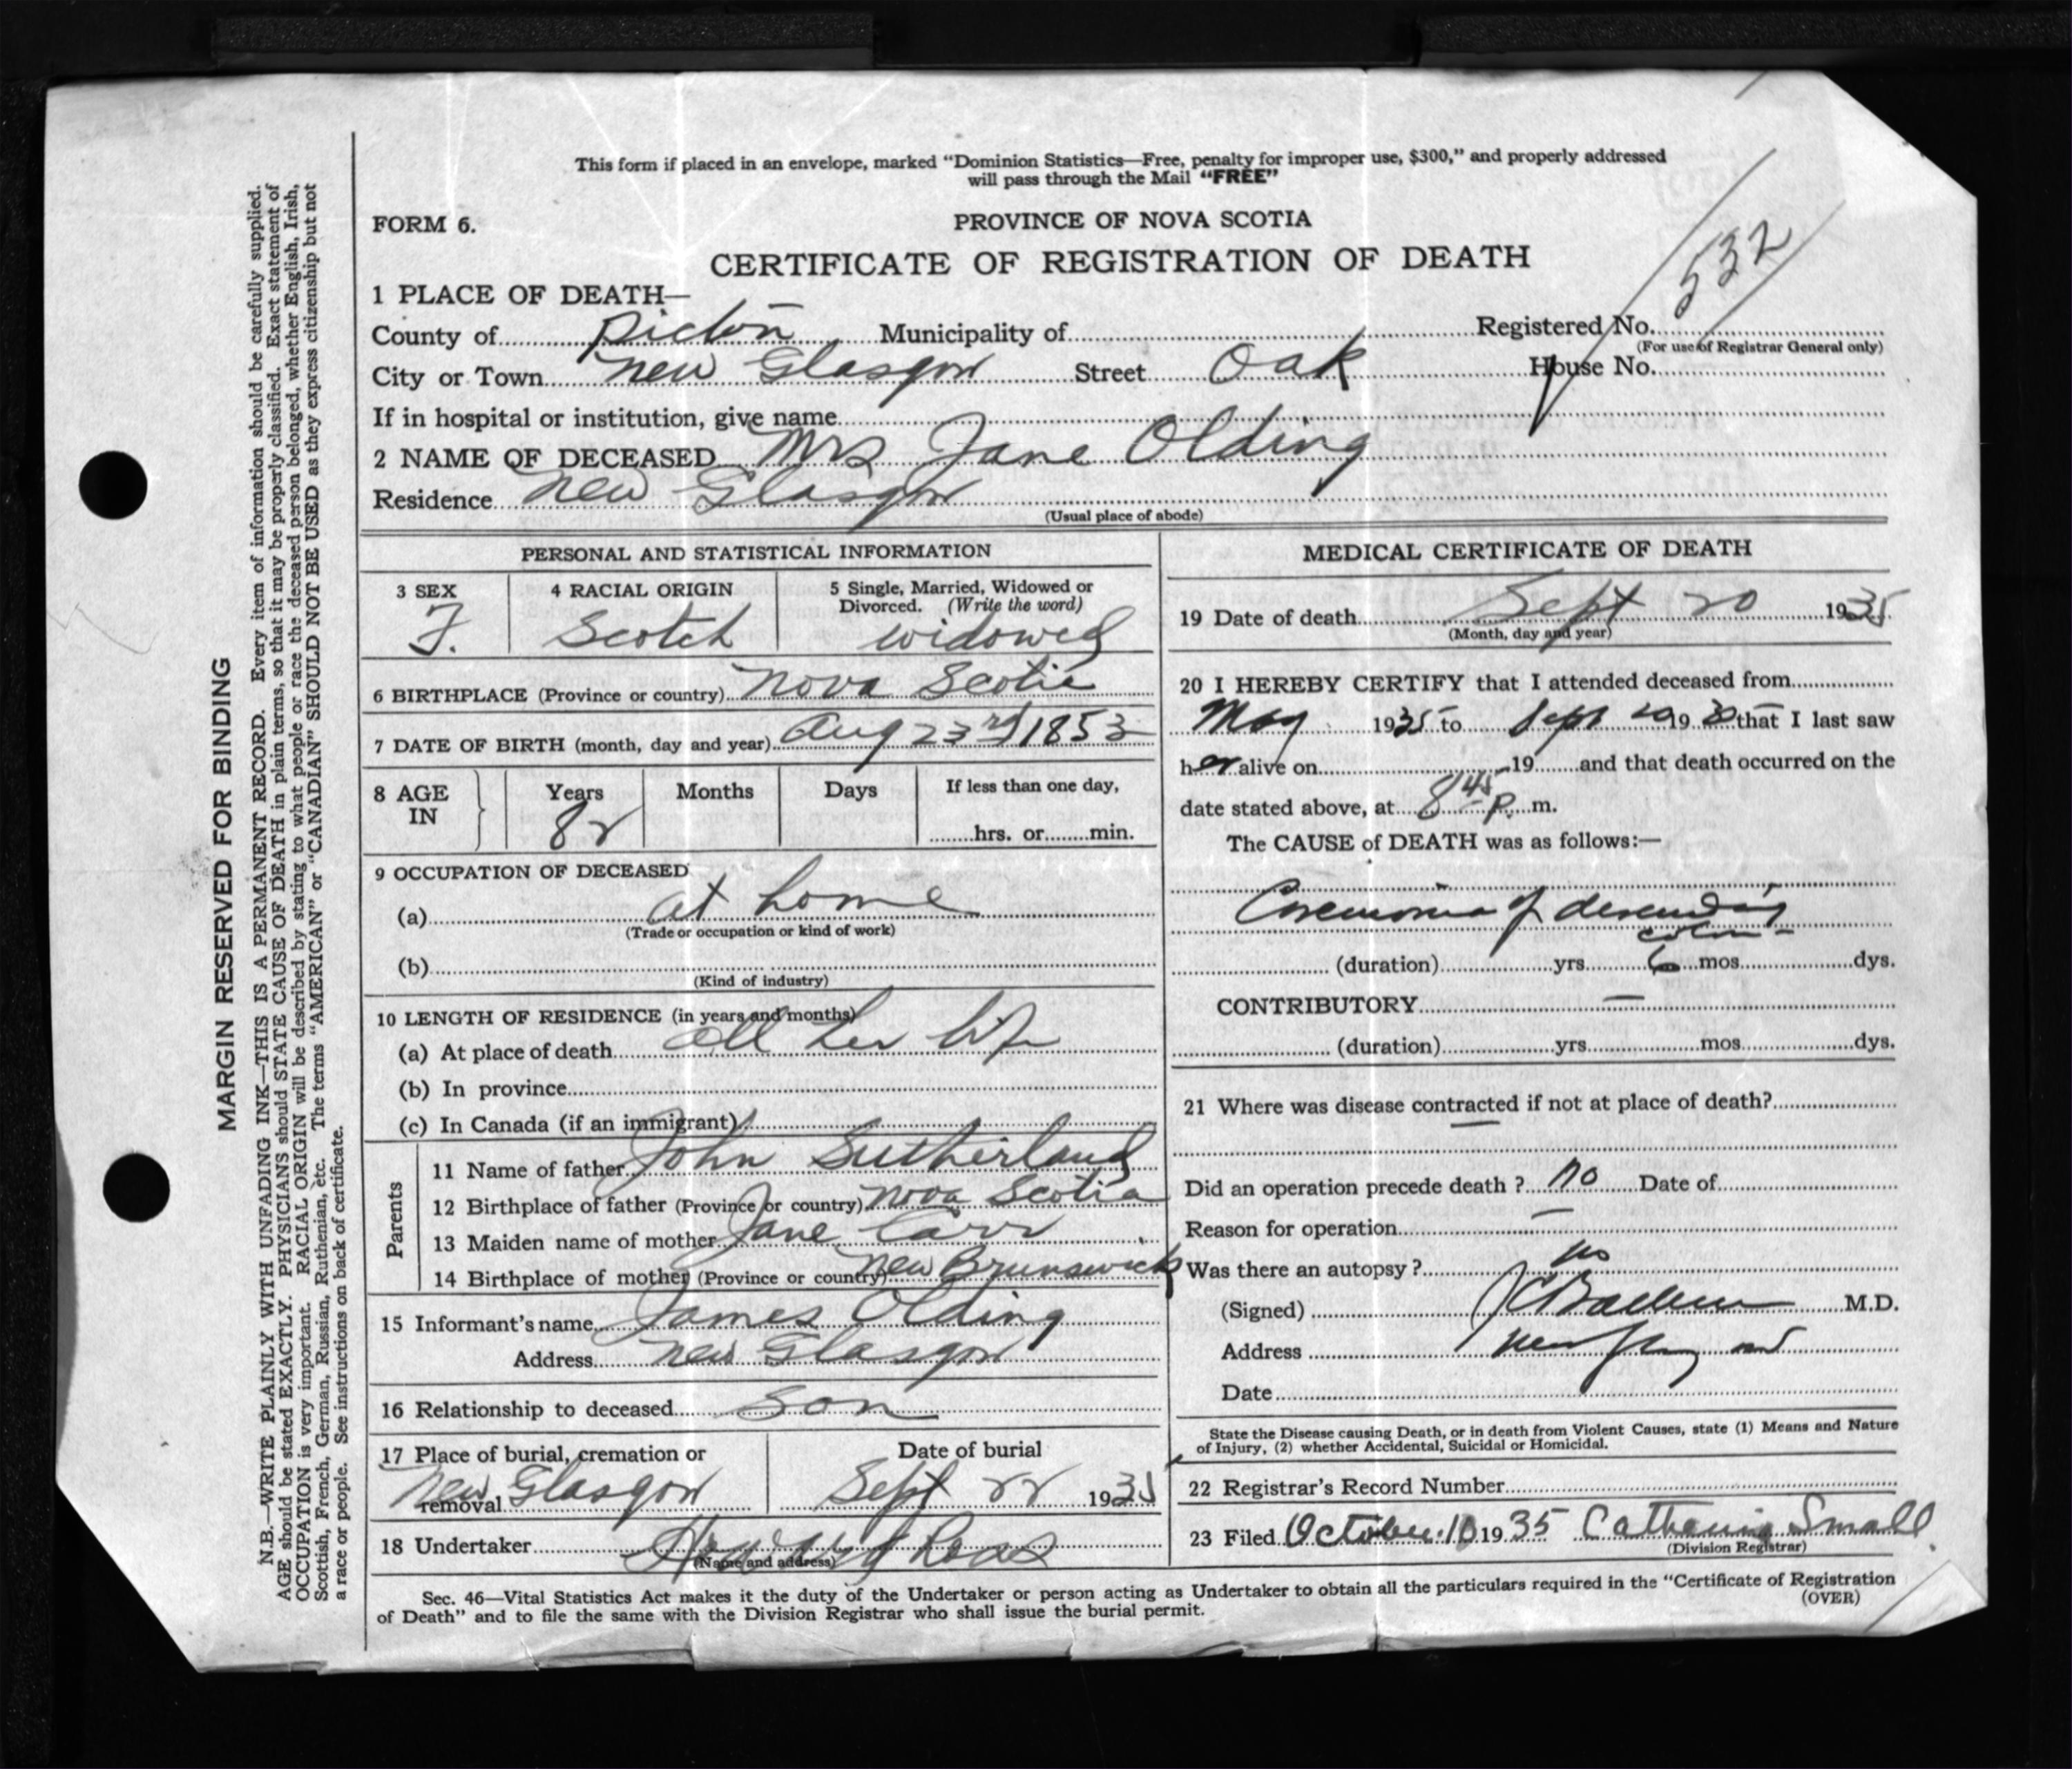 This form if placed in an envelope, marked “Dominion Statistics—Free, penalty for improper use, $300,” and properly addressed
will pass through the Mail “FREE”
FORM 6.
PROVINCE OF NOVA SCOTIA
532
CERTIFICATE OF REGISTRATION OF DEATH
1 PLACE OF DEATH—
County of Pictou Municipality of Registered No.
(For use of Registrar General only)
City or Town New Glasgow Street Oak House No.
If in hospital or institution, give name
2 NAME OF DECEASED Mrs Jane Olding
Residence New Glasgow
(Usual place of abode)
PERSONAL AND STATISTICAL INFORMATION
3 SEX 4 RACIAL ORIGIN 5 Single, Married, Widowed or
Divorced. (Write the word)
F. Scotch widowed
6 BIRTHPLACE (Province or country) Nova Scotia
7 DATE OF BIRTH (month, day and year) Aug 23rd 1853
8 AGE IN Years Months Days If less than one day,
82 hrs. or min.
9 OCCUPATION OF DECEASED
(a) at home
(Trade or occupation or kind of work)
(b)
(Kind of industry)
10 LENGTH OF RESIDENCE (in years and months)
(a) At place of death all her life
(b) In province
(c) In Canada (if an immigrant)
Parents
11 Name of father John Sutherland
12 Birthplace of father (Province or country) Nova Scotia
13 Maiden name of mother Jane Carr
14 Birthplace of mother (Province or country) New Brunswick
15 Informant's name James Olding
Address New Glasgow
16 Relationship to deceased son
17 Place of burial, cremation or Date of burial
removal New Glasgow Sept 22 1935
18 Undertaker Howard Ross
(Name and address)
MEDICAL CERTIFICATE OF DEATH
19 Date of death Sept 20 1935
(Month, day and year)
20 I HEREBY CERTIFY that I attended deceased from
May 1935 to Sept 20 19 that I last saw
her alive on 19 and that death occurred on the
date stated above, at 8 45 P. m.
The CAUSE of DEATH was as follows:—
of descending
colon
(duration) yrs 6 mos dys.
CONTRIBUTORY —
(duration) yrs mos dys.
21 Where was disease contracted if not at place of death?
—
Did an operation precede death ? no Date of
Reason for operation —
Was there an autopsy ? no
(Signed) M.D.
Address
Date
State the Disease causing Death, or in death from Violent Causes, state (1) Means and Nature
of Injury, (2) whether Accidental, Suicidal or Homicidal.
22 Registrar's Record Number
23 Filed October 10 1935 Catharine Small
(Division Registrar)
Sec. 46—Vital Statistics Act makes it the duty of the Undertaker or person acting as Undertaker to obtain all the particulars required in the “Certificate of Registration
of Death” and to file the same with the Division Registrar who shall issue the burial permit.
(OVER)
MARGIN RESERVED FOR BINDING
N.B.—WRITE PLAINLY WITH UNFADING INK—THIS IS A PERMANENT RECORD. Every item of information should be carefully supplied.
AGE should be stated EXACTLY. PHYSICIANS should STATE CAUSE OF DEATH in plain terms, so that it may be properly classified. Exact statement of
OCCUPATION is very important. RACIAL ORIGIN will be described by stating to what people or race the deceased person belonged, whether English, Irish,
Scottish, French, German, Russian, Ruthenian, etc. The terms “AMERICAN” or “CANADIAN” SHOULD NOT BE USED as they express citizenship but not
a race or people. See instructions on back of certificate.